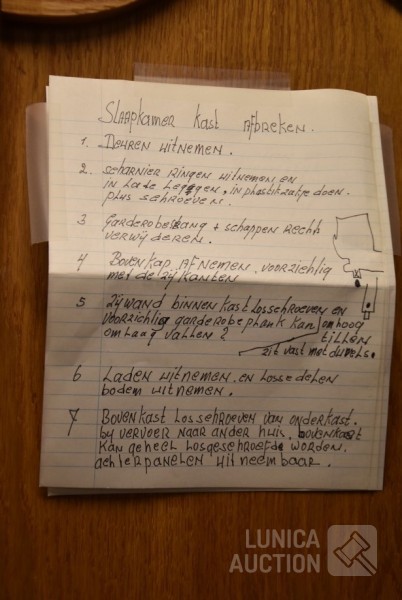 Slaapkamer kast afbreken.
1. Deuren uitnemen.
2. scharnier Ringen uitnemen en
in Lade Leggen, in plastikzakje doen.
plus schroeven.
3 Garderobestang + schappen Rechts
verwijderen.
4 Bovenkap Afnemen, voorzichtig
met de zijkanten
5 Zijwand binnen kast losschroeven en
voorzichtig garderobeplank kan omhoog
omlaag vallen? tillen
zit vast met duvels.
6 Laden uitnemen, en losse delen
bodem uitnemen.
7 Bovenkast losschroeven van onderkast.
by vervoer naar ander huis, bovenkast
kan geheel losgeschroefde worden.
achterpanelen uitneembaar.
LUNICA
AUCTION